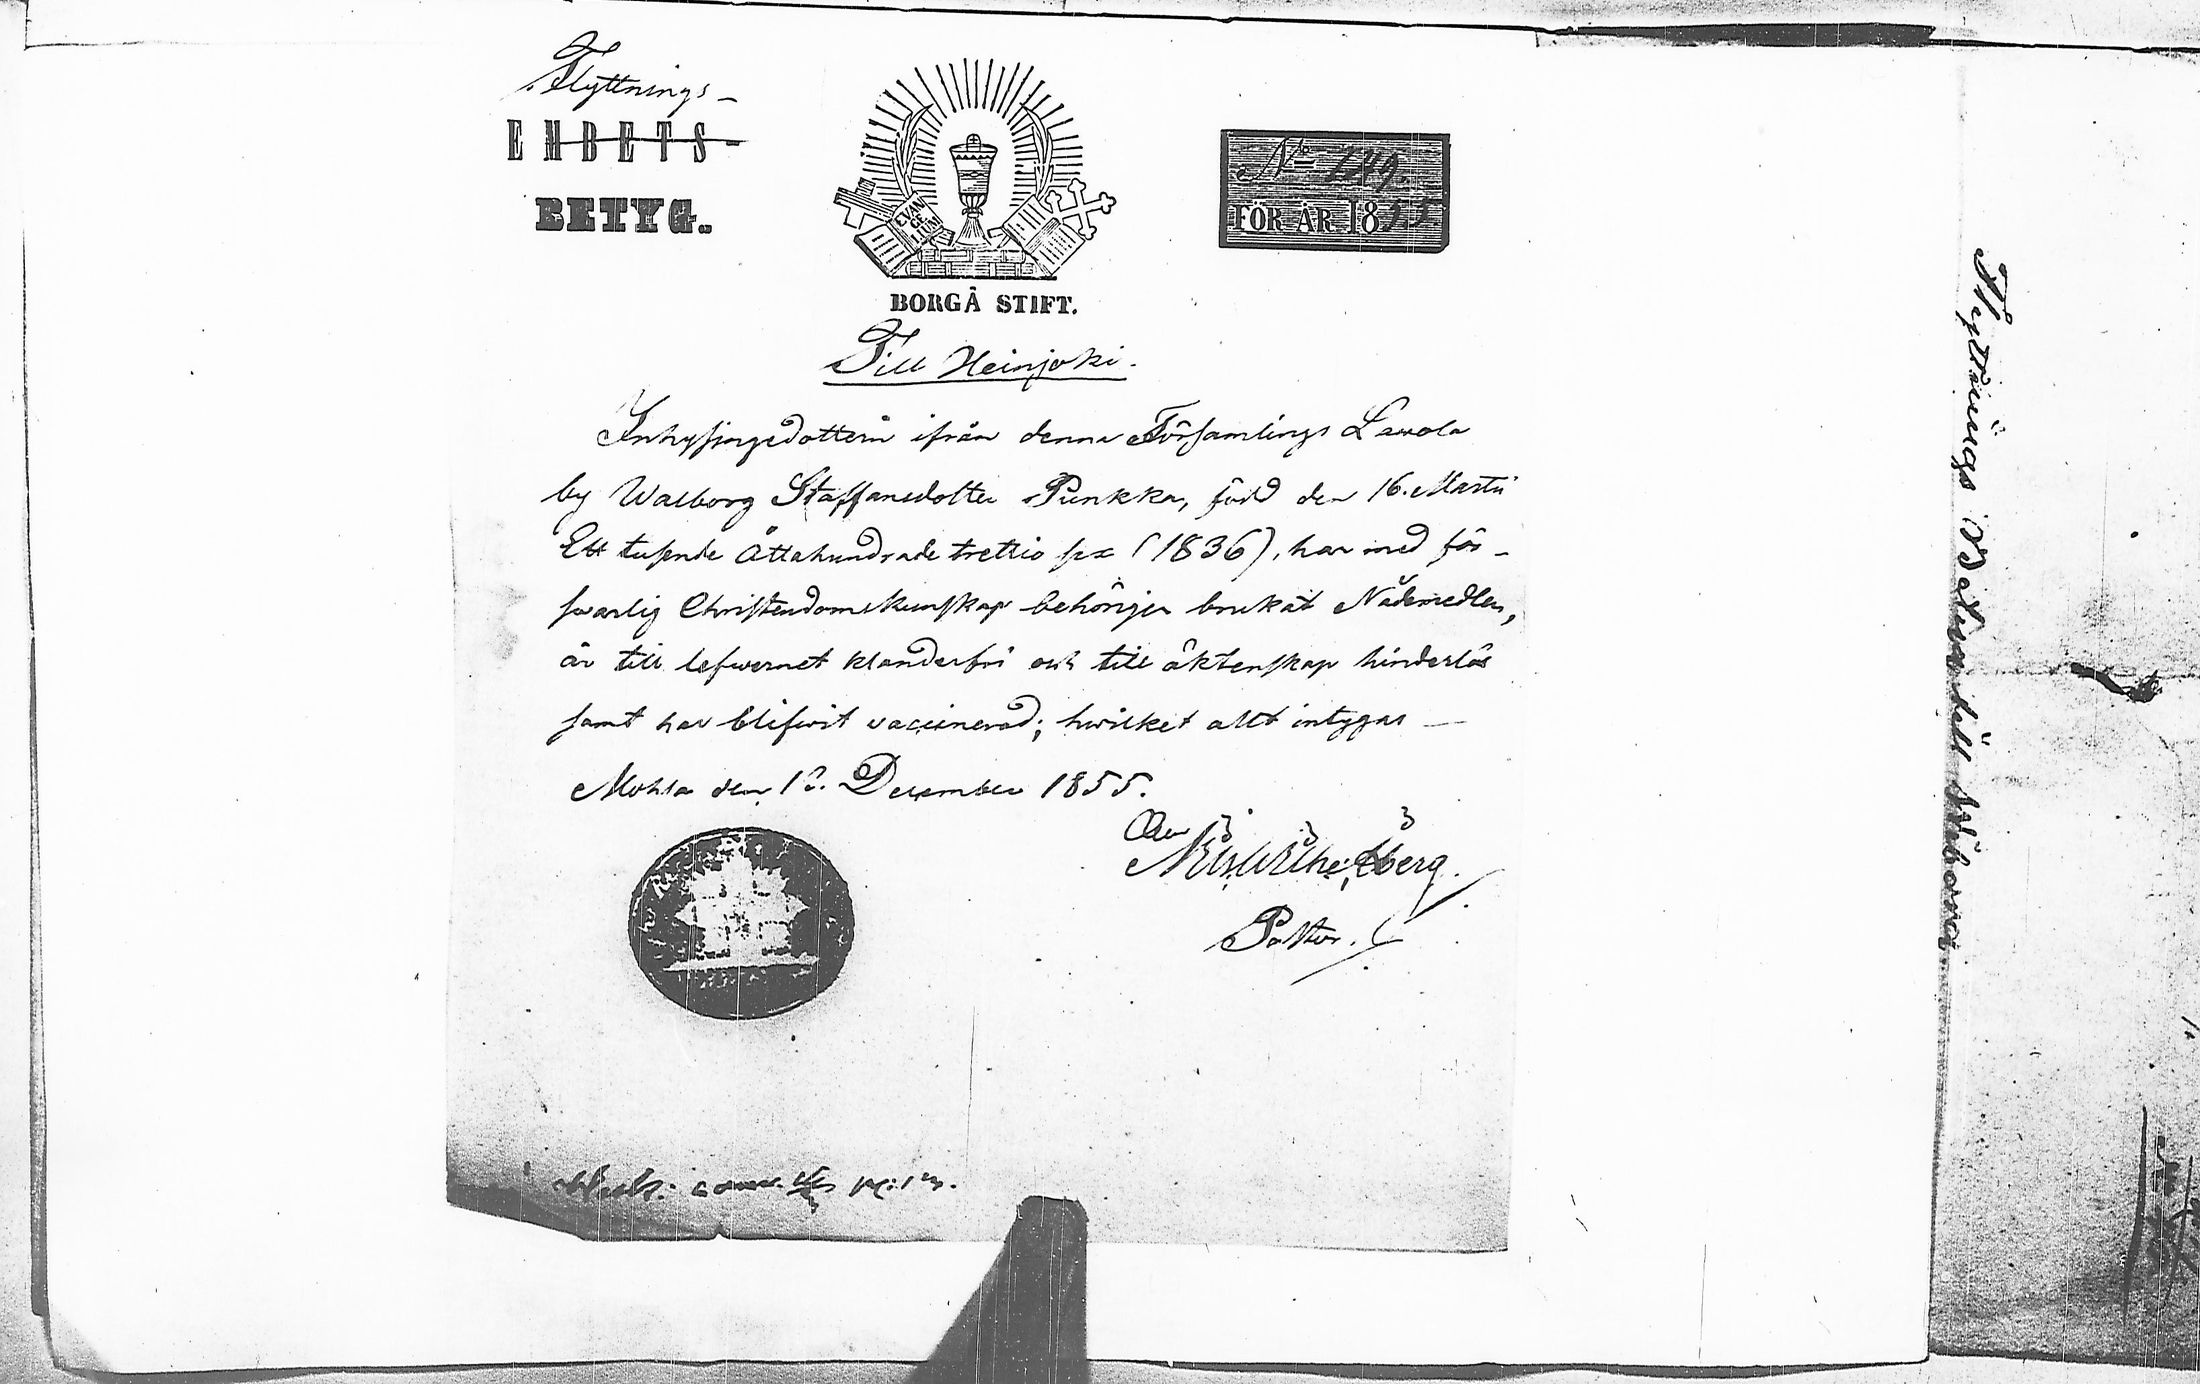 Flyttnings-
EMBETS-
BETYG.
EVAN
GE
LIUM
No 149.
FÖR ÅR 1855.
BORGÅ STIFT.
Till Heinjoki.
Inhysingedottern ifrån denna Församlings Lawola
by Walborg Staffansdotter Punkka, född den 16. Martii
Ett tusende Åttahundrade trettio sex (1836), har med för-
swarlig Christendomskunskap behörigen brukat Nådemedlen,
är till lefwernet klanderfri och till äktenskap hinderlös
samt har blifwit vaccinerad; hwilket allt intygas —
Mohla den 18. December 1855.
berg.
Pastor.
Flyttnings Betyg till Wiborg